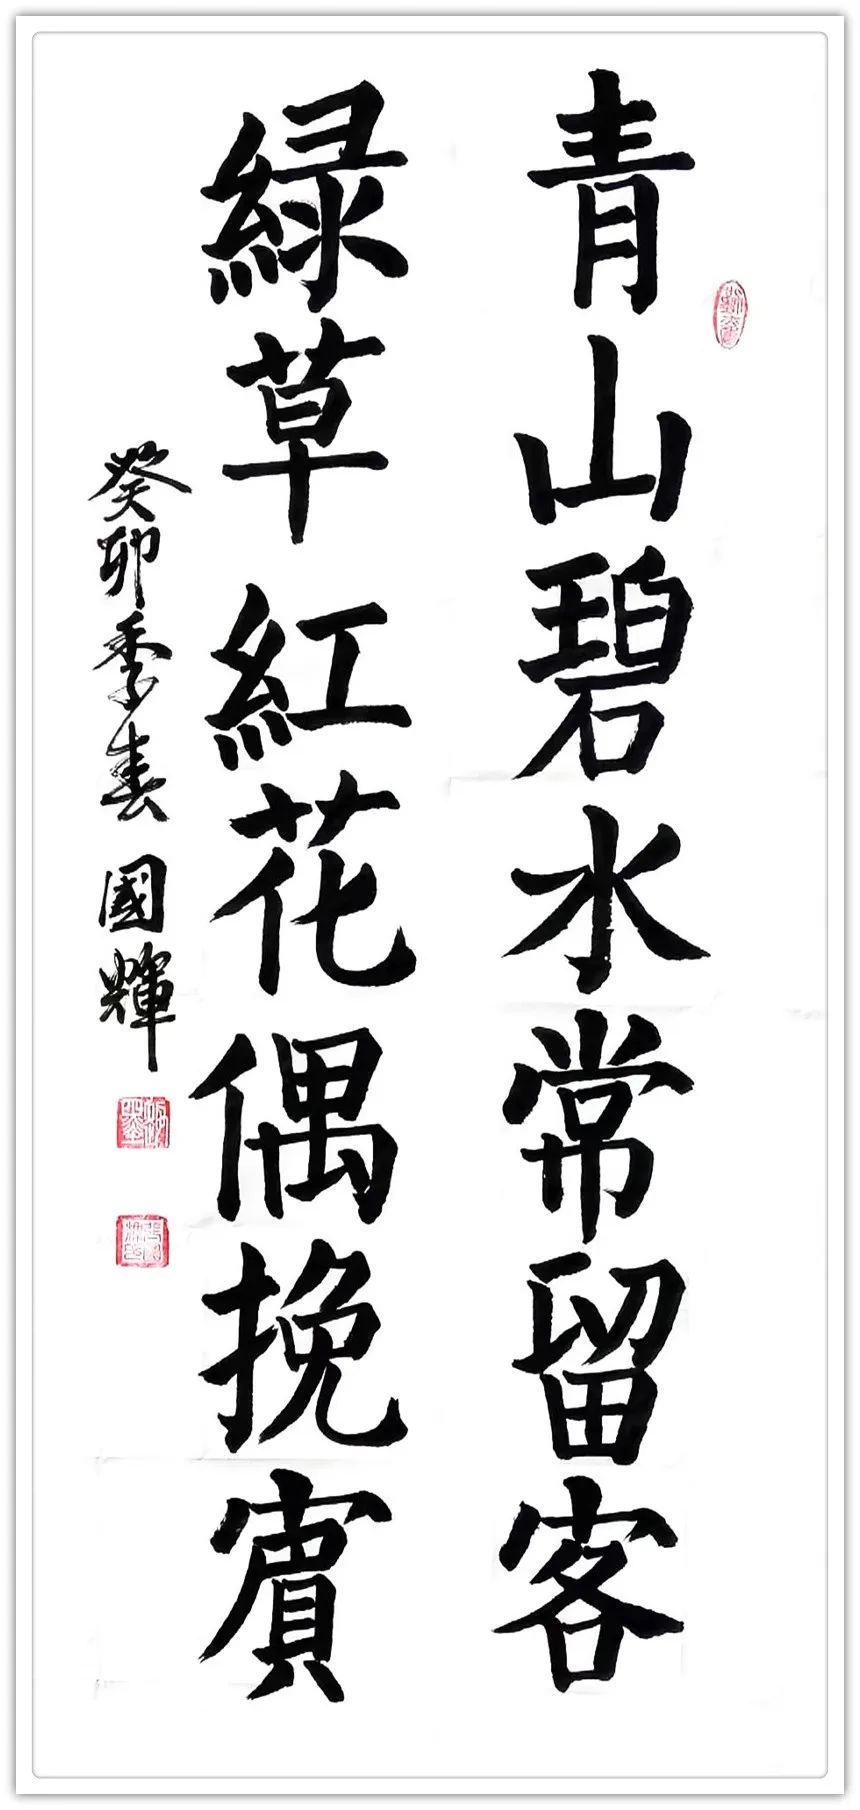 青山碧水常留客
緑草紅花偶挽賓
癸卯季春國輝